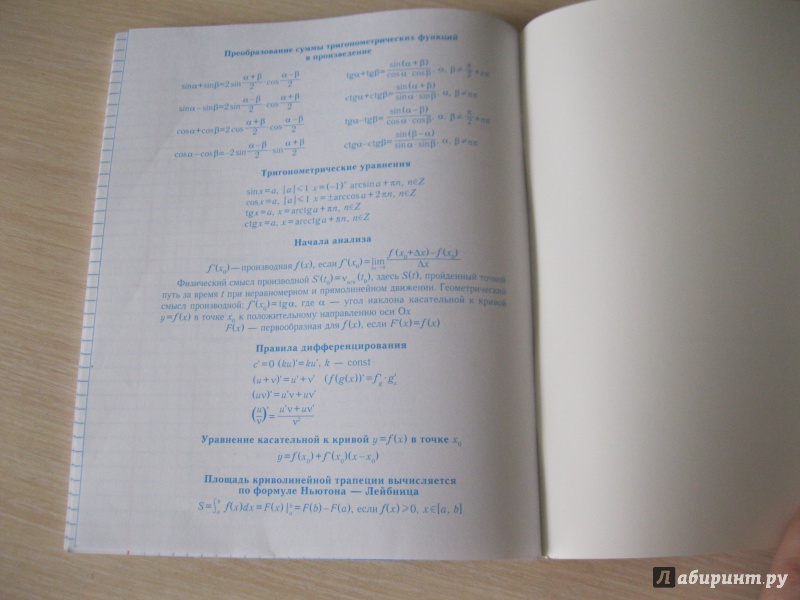 Преобразование суммы тригонометрических функций
в произведение
sinα+sinβ=2sin (α+β)/2 · cos (α−β)/2
sinα−sinβ=2sin (α−β)/2 · cos (α+β)/2
cosα+cosβ=2cos (α+β)/2 · cos (α−β)/2
cosα−cosβ=−2sin (α−β)/2 · sin (α+β)/2
tgα+tgβ= sin(α+β)/(cosα·cosβ), α, β≠ π/2 +πn
ctgα+ctgβ= sin(α+β)/(sinα·sinβ), α, β≠πn
tgα−tgβ= sin(α−β)/(cosα·cosβ), α, β≠ π/2 +πn
ctgα−ctgβ= sin(β−α)/(sinα·sinβ), α, β≠πn
Тригонометрические уравнения
sinx=a, |a|<1 x=(−1)ⁿ arcsina+πn, n∈Z
cosx=a, |a|<1 x=±arccosa+2πn, n∈Z
tgx=a, x=arctga+πn, n∈Z
ctgx=a, x=arcctga+πn, n∈Z
Начала анализа
f'(x₀)—производная f(x), если f'(x₀)=lim (f(x₀+Δx)−f(x₀))/Δx
Физический смысл производной S'(t₀)=v (t₀), здесь S(t), пройденный точкой
путь за время t при неравномерном и прямолинейном движении. Геометрический
смысл производной: f'(x₀)=tgα, где α — угол наклона касательной к кривой
y=f(x) в точке x₀ к положительному направлению оси Ox
F(x) — первообразная для f(x), если F'(x)=f(x)
Правила дифференцирования
c'=0 (ku)'=ku', k — const
(u+v)'=u'+v' (f(g(x))'=f'g·g'x
(uv)'=u'v+uv'
(u/v)'= (u'v+uv')/v²
Уравнение касательной к кривой y=f(x) в точке x₀
y=f(x₀)+f'(x₀)(x−x₀)
Площадь криволинейной трапеции вычисляется
по формуле Ньютона — Лейбница
S=∫ f(x)dx=F(x)| =F(b)−F(a), если f(x)⩾0, x∈[a, b]
Лабиринт.ру